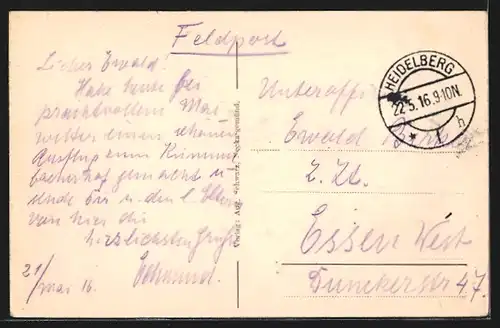 Feldpost
Lieber Ewald!
Habe heute bei
prachtvollem Mai
wetter einen schönen
Ausflug zum Kümmel
bacherhof gemacht u.
sende Dir u. den l. Eltern
von hier die
herzlichsten Grüße
Edmund.
21/Mai 16.
Verlag: Aug. Schwarz, Neckargemünd.
HEIDELBERG
22.5.16.9-10N.
* 1 h
Unteroffi
Ewald
z. Zt.
Essen West
Dunckerstr 47.